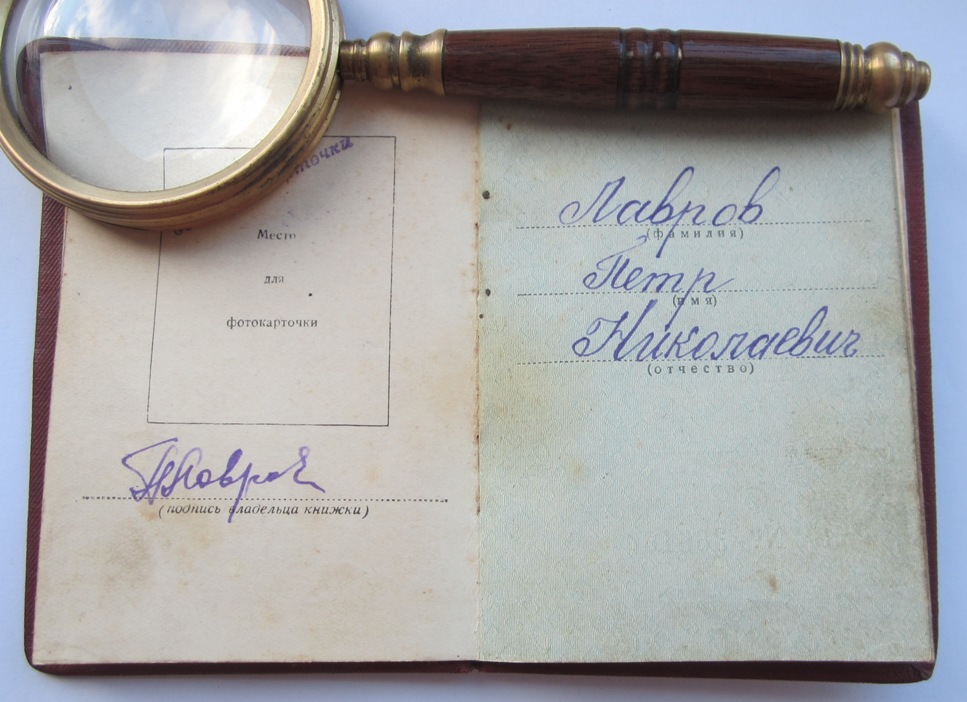 Место
для
фотокарточки
(подпись владельца книжки)
Лавров
(фамилия)
Пётр
(имя)
Николаевич
(отчество)